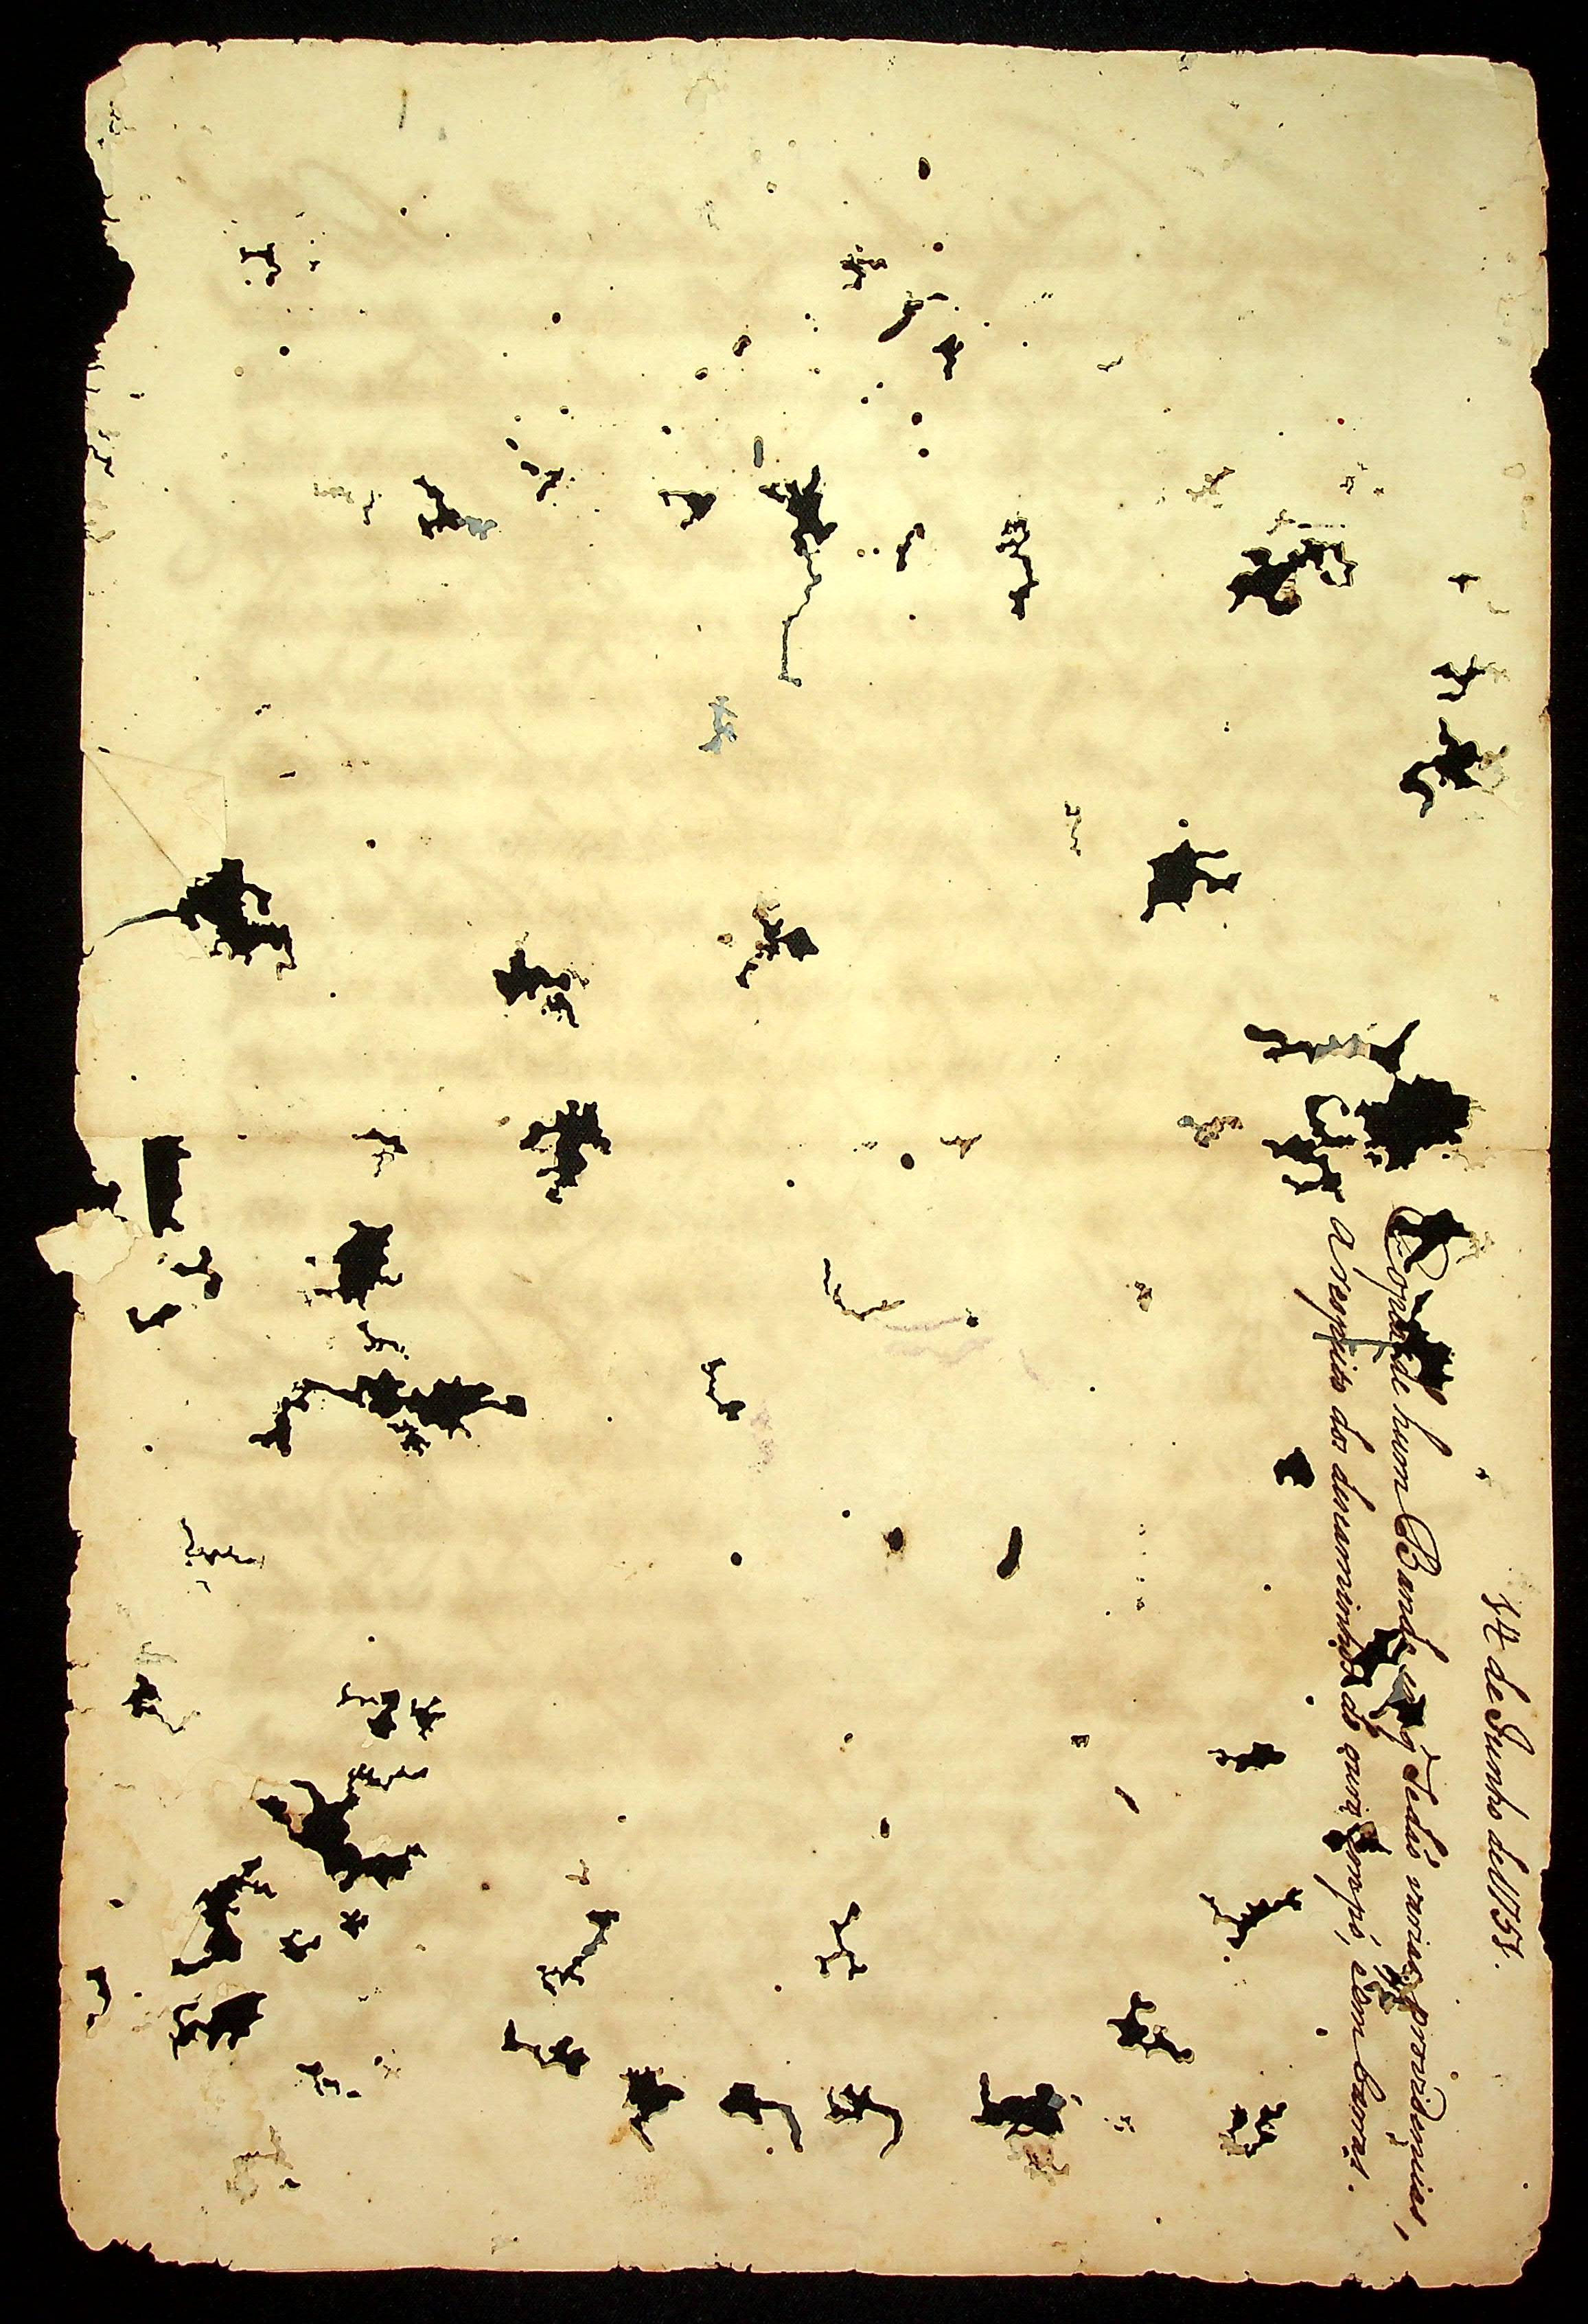 14 de Junho de 1758.
Copia de hum Bando em q̃ se dás varias providencias,
a respeito dos descaminhos do ouro em pó, e em barras.